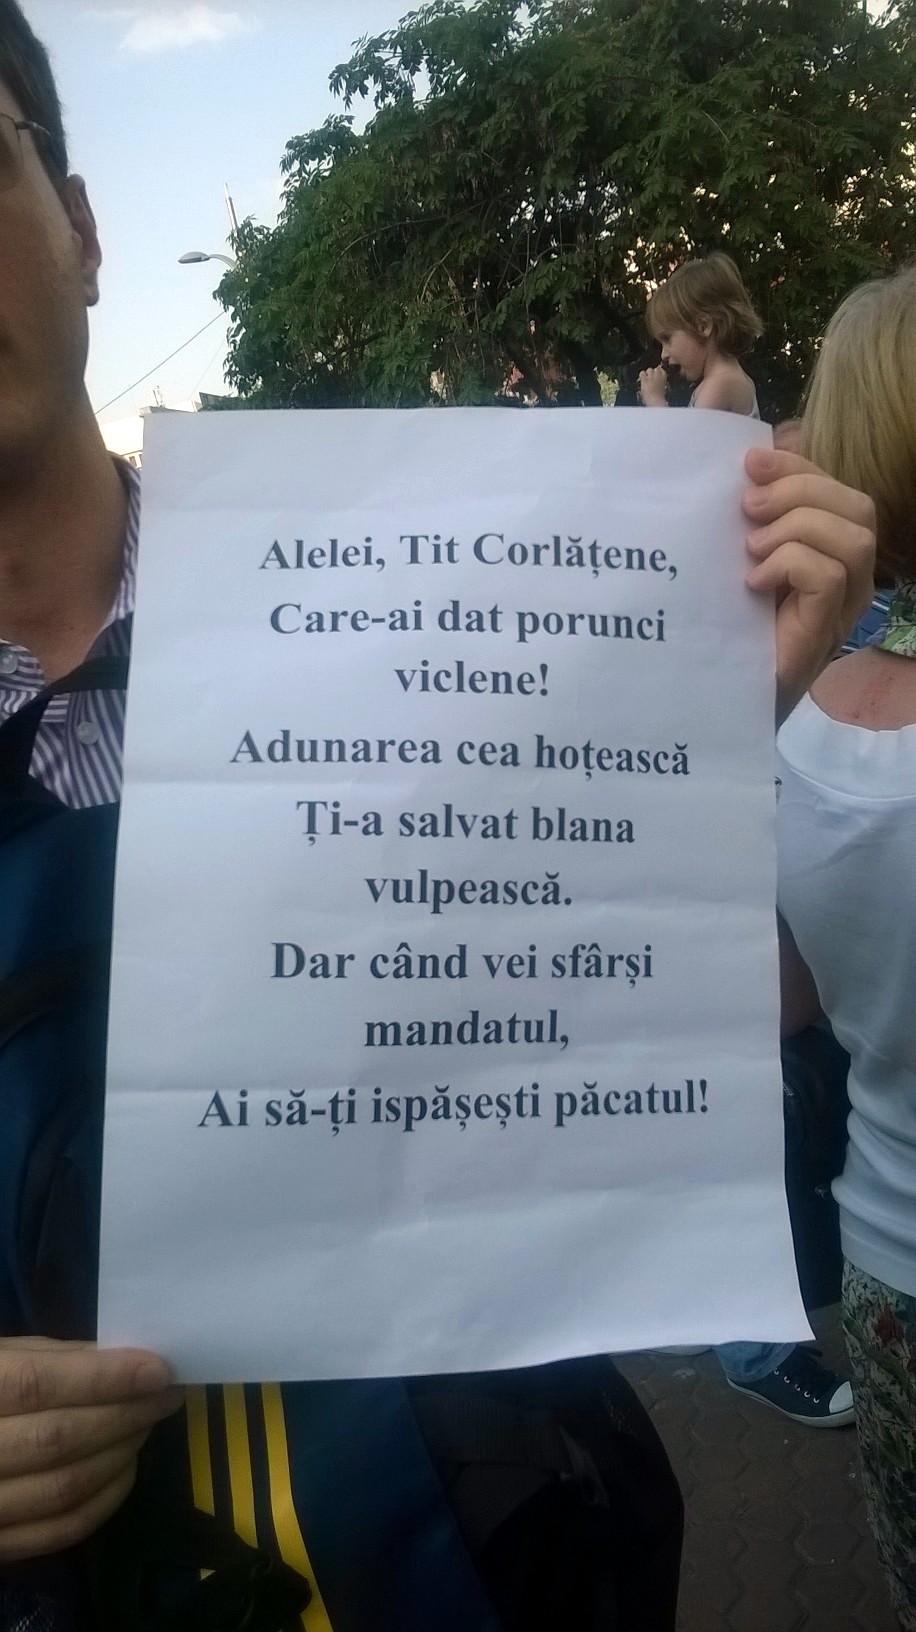 Alelei, Tit Corlățene,
Care-ai dat porunci
viclene!
Adunarea cea hoțească
Ți-a salvat blana
vulpească.
Dar când vei sfârși
mandatul,
Ai să-ți ispășești păcatul!